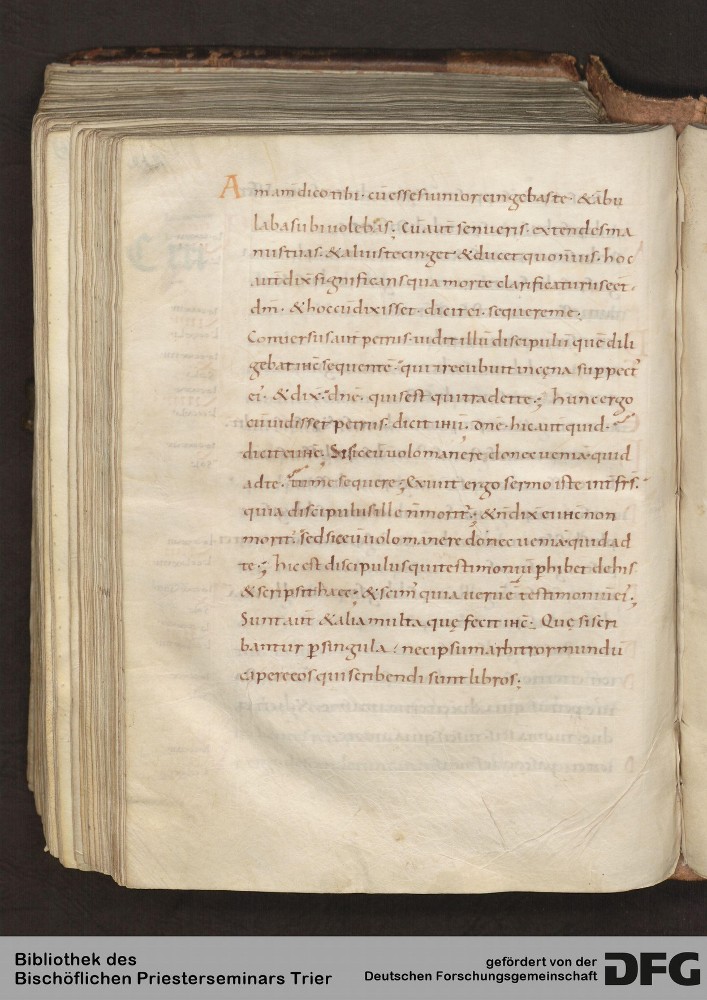 Am̄ am̄ dico tibi· cū esses iunior cingebas te· & ābu
labas ubi uolebas; Cū aut̄ senueris· extendes ma
nus tuas· & alius te cinget & ducet quo n̄ uis· hoc
aut̄ dix̄ significans qua morte clarificaturus e̅et·
dm̄· & hoc cū dixisset· dicit ei· sequere me·
Conuersus aut̄ petrus· uidit illū discipulū quē dili
gebat ih̄c sequentē· qui & recubuit in cęna sup pect᷒
ei᷒· & dix̄· dn̄e· quis est qui tradet te·; hunc ergo
cū uidisset petrus· dicit ih̄u· dn̄e· hic aut̄ quid·
dicit ei ih̄c· Si sic eū uolo manere donec ueniā· quid
ad te· tu me sequere; Exiuit ergo sermo iste int̄ fr̄s·
quia discipulus ille n̄ morit᷒; & n̄ dix̄ ei ih̄c non
morit᷒· sed sic eū uolo manere donec ueniā· quid ad
te; hic est discipulus qui testimoniū ꝑhibet de his
& scripsit haec· & scim᷒ quia uerū ē testimoniū ei᷒;
Sunt aut̄ & alia multa quę fecit ih̄c· Quę si scri
bantur ꝑ singula· nec ipsum arbitror mundū
capere eos qui scribendi sunt libros;
Bibliothek des
Bischöflichen Priesterseminars Trier
gefördert von der
Deutschen Forschungsgemeinschaft
DFG